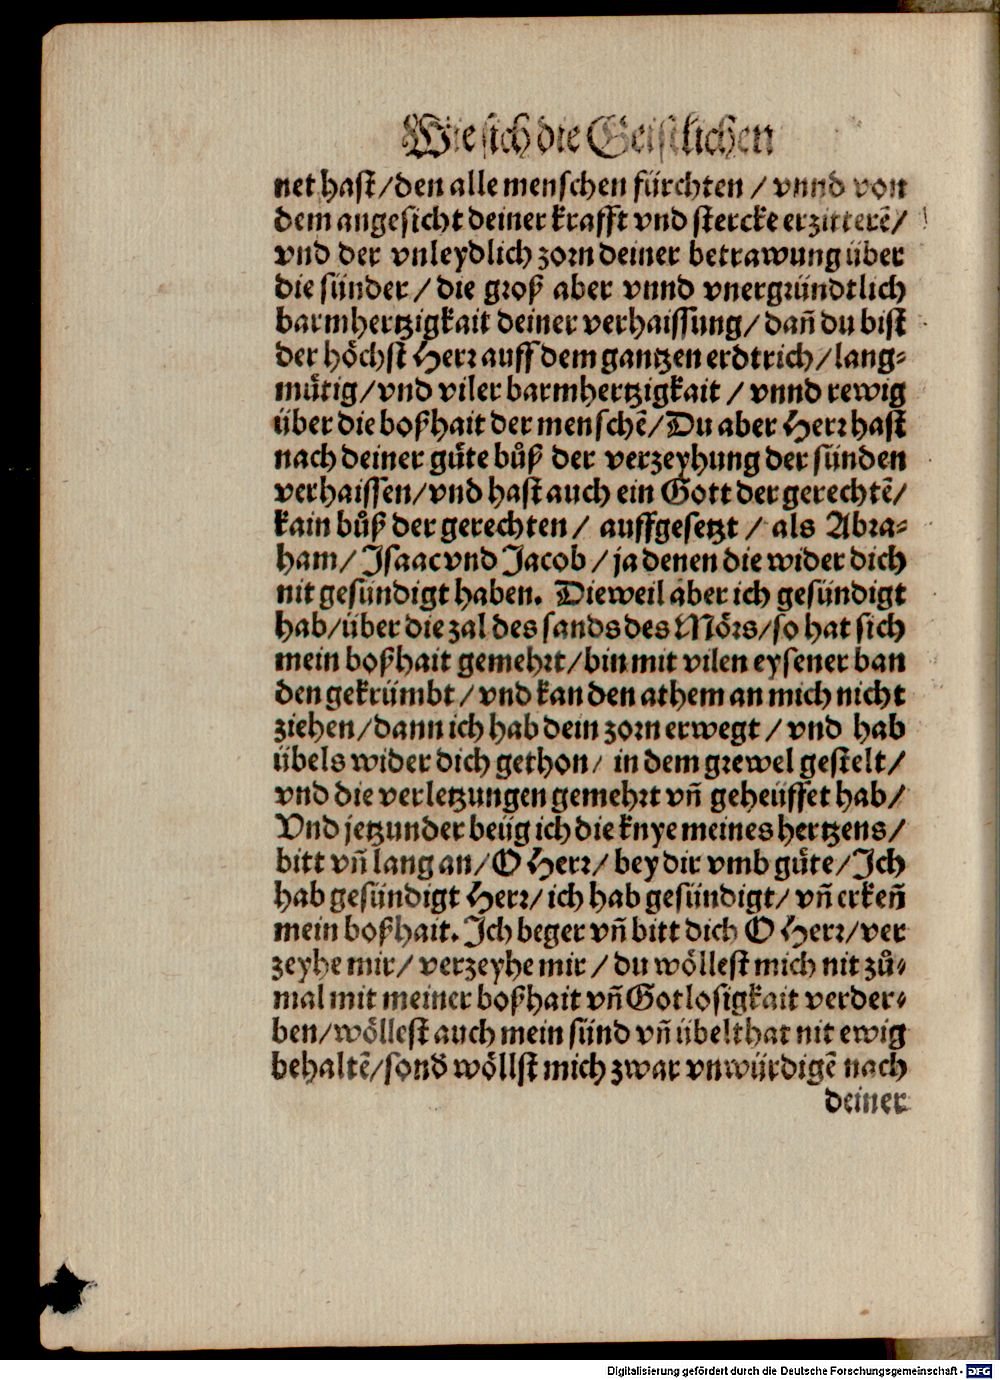 Wie sich die Geistlichen
net hast/den alle menschen fürchten / vnnd von
dem angesicht deiner krafft vnd stercke erzitterẽ/
vnd der vnleydlich zorn deiner betrawung über
die sünder / die groß aber vnnd vnergründtlich
barmhertzigkait deiner verhaissung/ dañ du bist
der höchst Herr auff dem gantzen erdtrich/lang-
mütig/vnd viler barmhertzigkait / vnnd rewig
über die boßhait der menschẽ/Du aber Herr hast
nach deiner güte bůß der verzeyhung der sünden
verhaissen/vnd hast auch ein Gott der gerechtẽ/
kain bůß der gerechten / auffgesetzt / als Abra-
ham/ Isaac vnd Jacob / ja denen die wider dich
nit gesündigt haben. Dieweil aber ich gesündigt
hab/über die zal des sands des Mörs/so hat sich
mein boßhait gemehrt/bin mit vilen eysener ban
den gekrümbt / vnd kan den athem an mich nicht
ziehen/dann ich hab dein zorn erwegt / vnd hab
übels wider dich gethon/ in dem grewel gestelt/
vnd die verletzungen gemehrt vñ geheüffet hab/
Vnd jetzunder beüg ich die knye meines hertzens/
bitt vñ lang an/O Herr/ bey dir vmb güte/Ich
hab gesündigt Herr/ ich hab gesündigt/ vñ erkeñ
mein boßhait. Ich beger vñ bitt dich O Herr/ver
zeyhe mir/ verzeyhe mir / du wöllest mich nit zů-
mal mit meiner boßhait vñ Gotlosigkait verder-
ben/wöllest auch mein sünd vñ übelthat nit ewig
behaltẽ/sond̃ wöllst mich zwar vnwürdigẽ nach
deiner
Digitalisierung gefördert durch die Deutsche Forschungsgemeinschaft - DFG